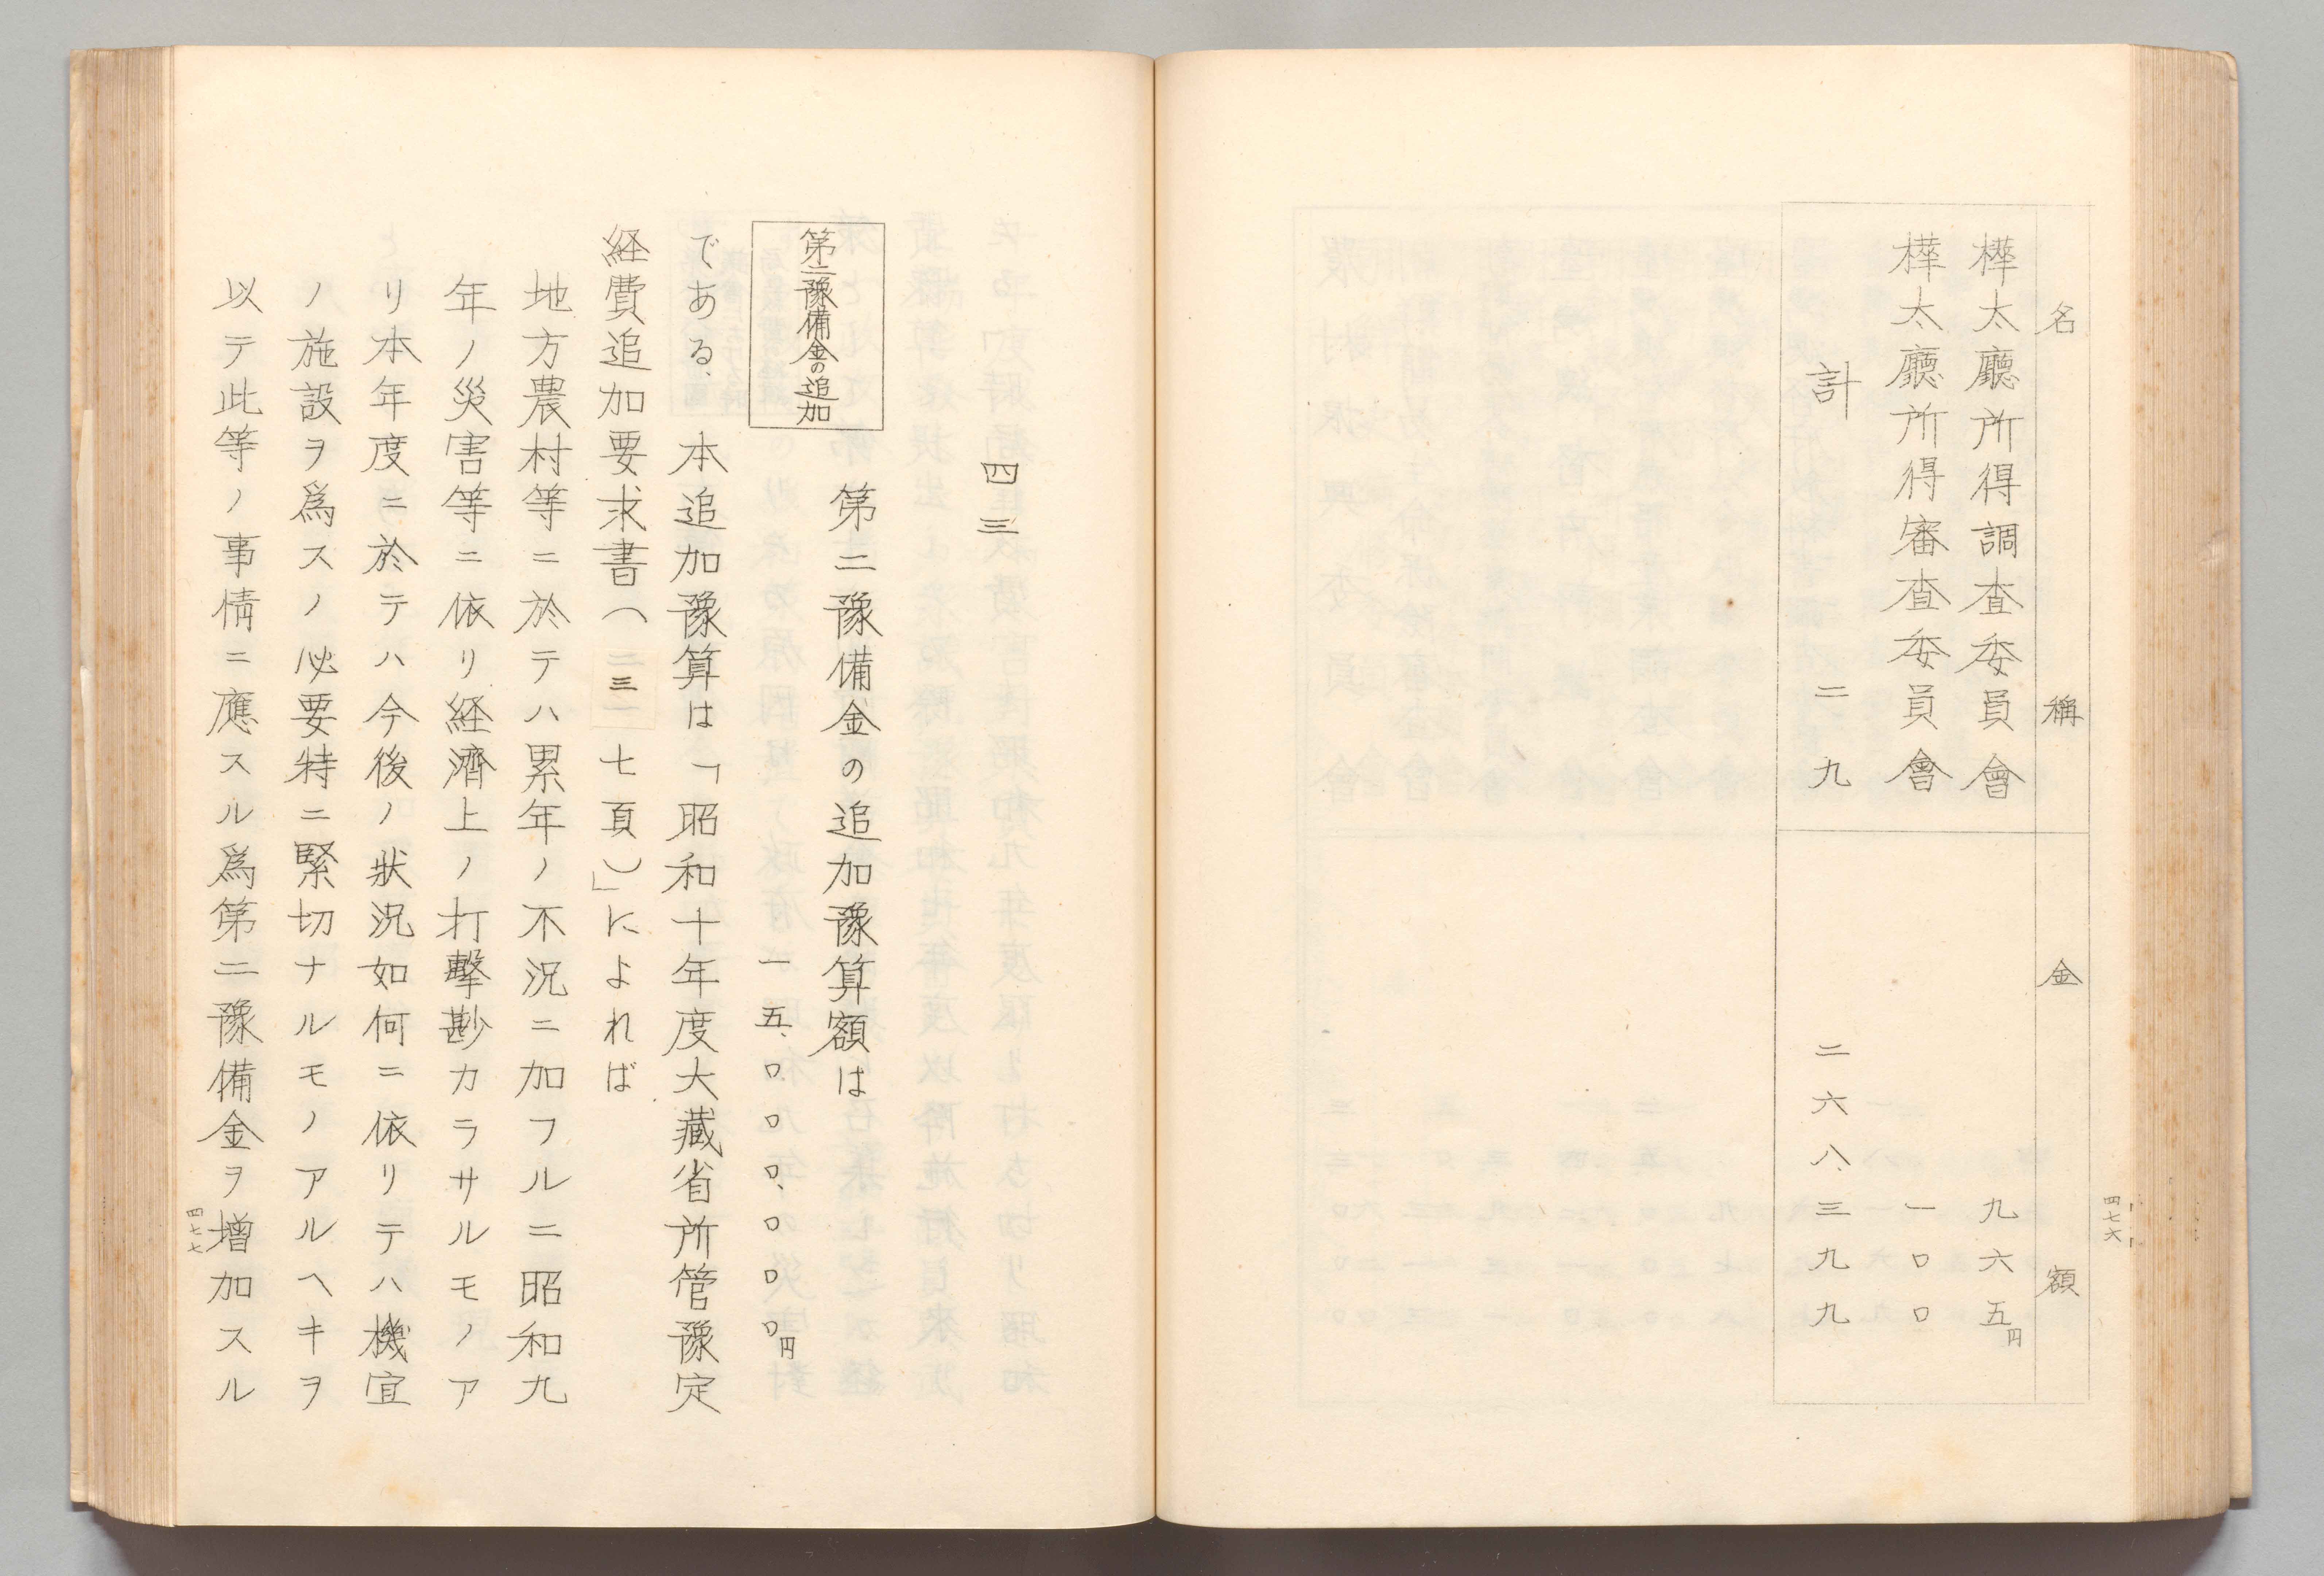 四七六
名稱 金額
樺太廳所得調査委員會 九六五円
樺太廳所得審査委員會 一〇〇
計 二九 二六八、三九九
四三
第二豫備金の追加豫算額は
第二豫備金の追加
一五、〇〇〇、〇〇〇円
である、 本追加豫算は「昭和十年度大藏省所管豫定
経費追加要求書（二三一七頁）」によれば
地方農村等ニ於テハ累年ノ不況ニ加フルニ昭和九
年ノ災害等ニ依リ経濟上ノ打擊尠カラサルモノア
リ本年度ニ於テハ今後ノ狀況如何ニ依リテハ機宜
ノ施設ヲ爲スノ必要特ニ緊切ナルモノアルヘキヲ
以テ此等ノ事情ニ應スル爲第二豫備金ヲ增加スル
四七七